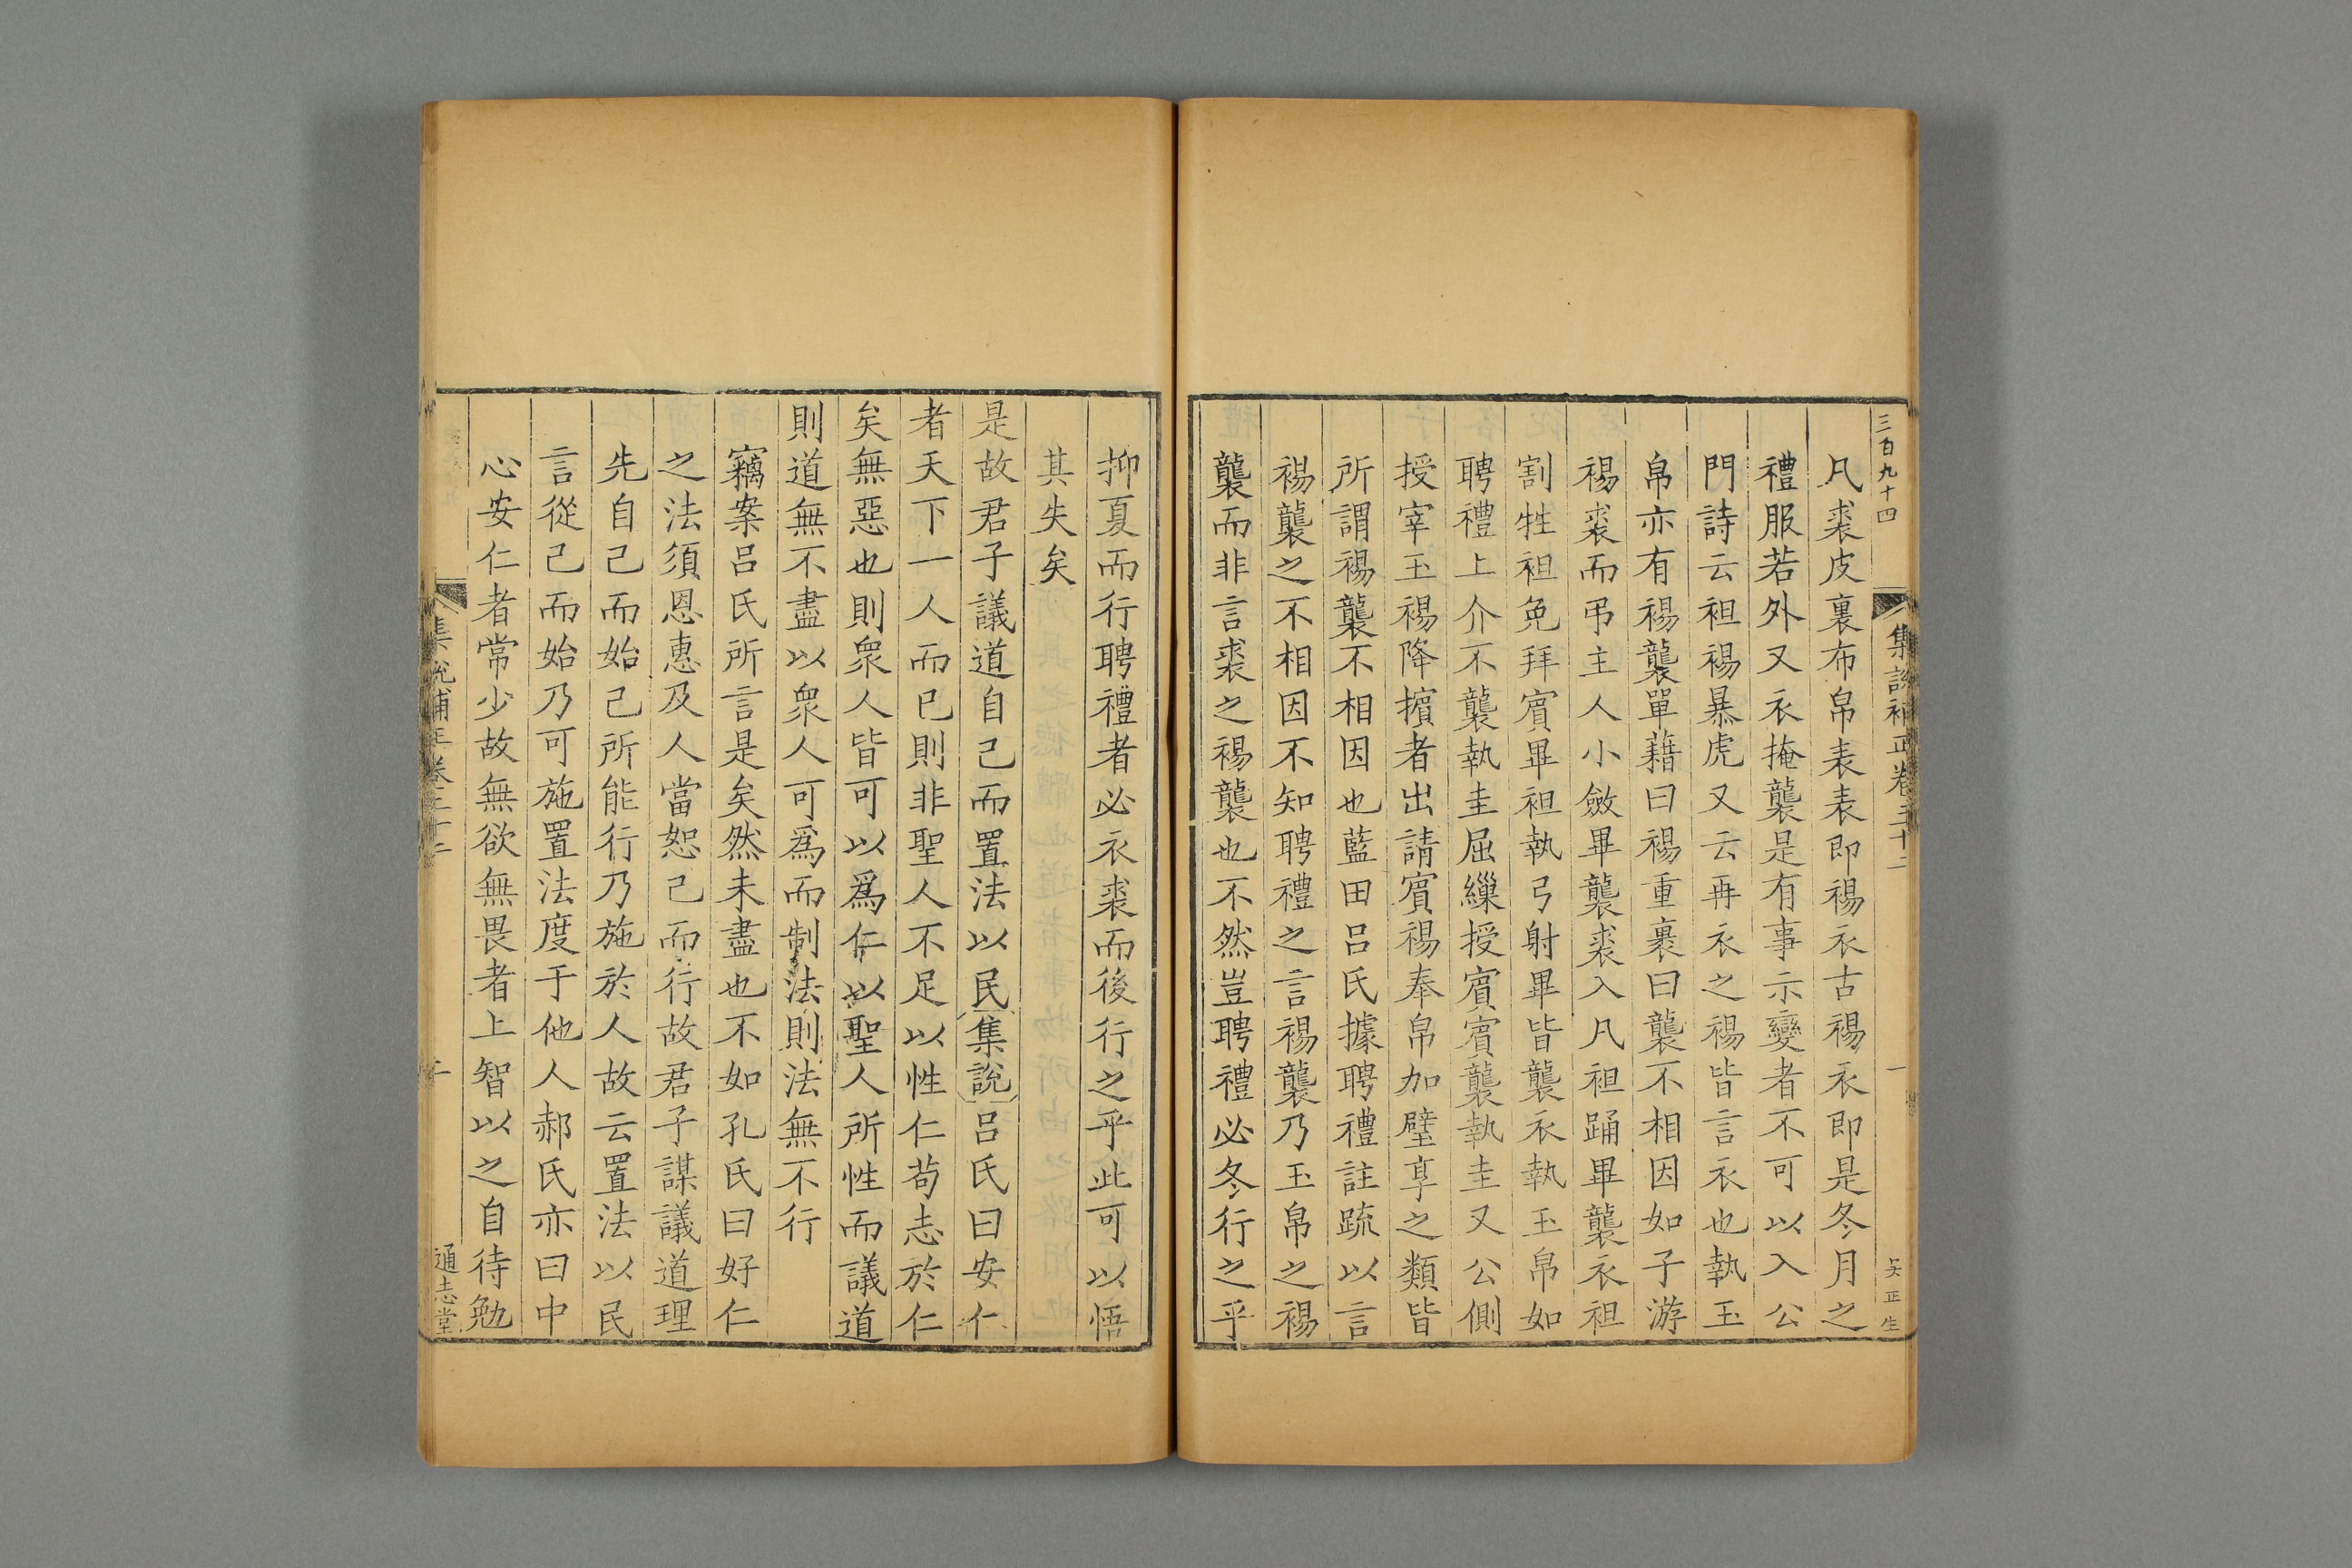 三百九十四
集説補正卷三十二
一
凡裘皮裏布帛表表即裼衣古裼衣即是冬月之
禮服若外又衣掩襲是有事示變者不可以入公
門詩云袒裼暴虎又云再衣之裼皆言衣也執玉
帛亦有裼襲單藉曰裼重裹曰襲不相因如子游
裼裘而弔主人小斂畢襲裘入凡袒踊畢襲衣袒
割牲袒免拜賓畢袒執弓射畢皆襲衣執玉帛如
聘禮上介不襲執圭屈繅授賓賓襲執圭又公側
授宰玉裼降擯者出請賓裼奉帛加璧享之類皆
所謂裼襲不相因也藍田呂氏據聘禮註疏以言
裼襲之不相因不知聘禮之言裼襲乃玉帛之裼
襲而非言裘之裼襲也不然豈聘禮必冬行之乎
抑夏而行聘禮者必衣裘而後行之乎此可以悟
其失矣
是故君子議道自己而置法以民集說呂氏曰安仁
者天下一人而已則非聖人不足以性仁茍志於仁
矣無惡也則衆人皆可以爲仁以聖人所性而議道
則道無不盡以衆人可爲而制法則法無不行
竊案呂氏所言是矣然未盡也不如孔氏曰好仁
之法須恩惠及人當恕己而行故君子謀議道理
先自己而始己所能行乃施於人故云置法以民
言從己而始乃可施置法度于他人郝氏亦曰中
心安仁者常少故無欲無畏者上智以之自待勉
集説補正卷三十二
二
通志堂